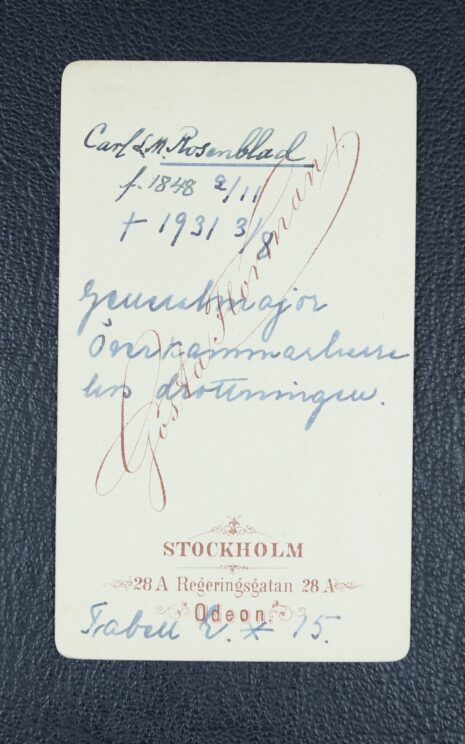 Carl L. M. Rosenblad
f. 1848 2/11
† 1931 3/8
Generalmajor
Överkammarherre
hos drottningen.
Gösta Florman
STOCKHOLM
28 A Regeringsgatan 28 A
Odeon.
Tabell 15.